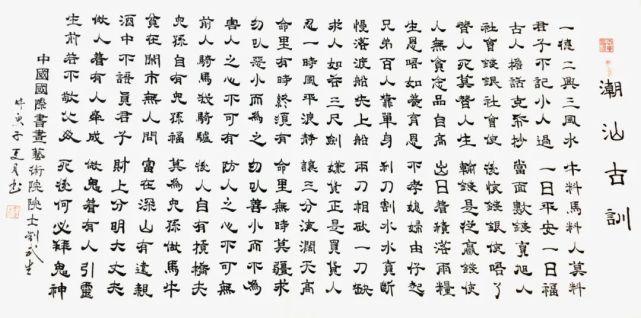 潮汕古訓
一德二興三風水 牛料馬料人莫料
君子不記小人過 一日平安一日福
古人話克抄 當面數錢真人
社會錢銀社會使 後錢銀使唔了
替人死莫替人生 輸錢是從贏錢使
人無貪念品自高 出日着積落雨糧
生恩唔如養育恩 不孝媳婦由仔起
兄弟百人靠單身 利刀割水水斷
慢落渡船先上船 兩刀相砍一刀缺
求人如吞三尺劍 嫌貨正是買貨人
忍一時風平浪静 讓三分海闊天高
命里有時終須有 命里無時莫彊求
勿以惡小而為之 勿以善小而不為
害人之心不可有 防人之心不可無
前人騎馬我騎驢 後人自有橫橋夫
兒孫自有兒孫福 莫為兒孫做馬牛
貧在鬧市無人問 富在深山有遠親
酒中不語真君子 財上分明大丈夫
做人着有人牽成 做鬼着有人引靈
生前若不敬父母 死後何必拜鬼神
中國國際書畫藝術院院士劉武生
時庚子夏月書